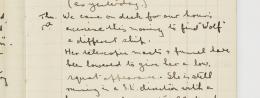 (as yesterday)
Thu. We came on deck for our hour's
1st exercise this morning to find "Wolf"
a different ship.
Her telescopic masts & funnel have
been lowered to give her a low,
squat appearance. She is still
running in a direction with a